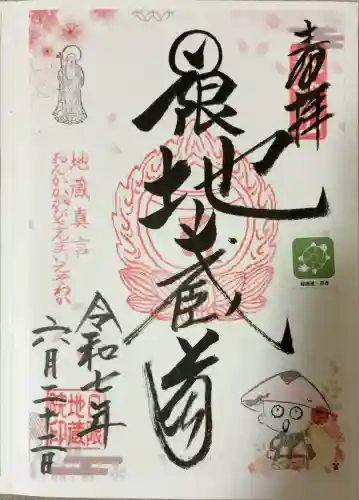 奉拝
日限地蔵尊
地蔵真言
おんかかかびさんまえいそわか
令和七年
六月二十二日
日限
地蔵
院印